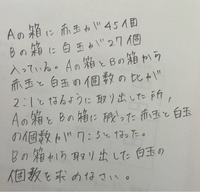 Aの箱に赤玉が45個
Bの箱に白玉が27個
入っている。Aの箱とBの箱から
赤玉と白玉の個数の比が
2:1となるように取り出した所、
Aの箱とBの箱に残った赤玉と白玉
の個数が7:5となった。
Bの箱から取り出した白玉の
個数を求めなさい。